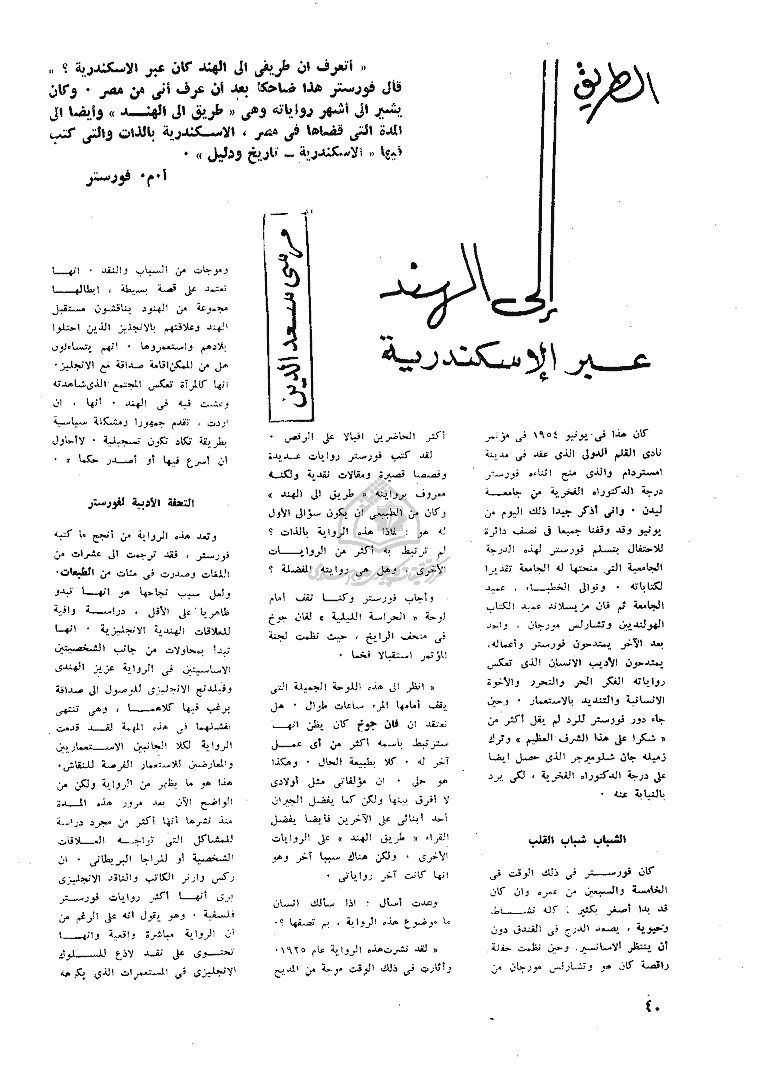 الطريق
إلى الهند
عبر الإسكندرية
« أتعرف ان طريقى الى الهند كان عبر الاسكندرية ؟ »
قال فورستر هذا ضاحكا بعد أن عرف أنى من مصر ٠ وكان
يشير الى أشهر رواياته وهى « طريق الى الهنـد » وأيضا الى
المدة التى قضاها فى مصر ، الاسـكندرية بالذات والتى كتب
فيها « الاسكندرية ــ تاريخ ودليل » ٠
أ٠م٠ فورستر
مرسى سعد الدين
كان هذا فى يونيو ١٩٥٤ فى مؤتمر
نادى القلم الدولى الذى عقد فى مدينة
امستردام والذى منح اثناءه فورستر
درجة الدكتوراه الفخرية من جامعـة
ليدن ٠ وانى أذكر جيدا ذلك اليوم من
يونيو وقد وقفنا جميعا فى نصف دائرة
للاحتفال بتسلم فورستر لهذه الدرجة
الجامعية التى منحتها له الجامعة تقديرا
لكتاباته ٠ وتوالى الخطبـاء ، عميد
الجامعة ثم فان مزيسلاند عميد الكتاب
الهولنديين وتشارلس مورجان ، واحد
بعد الآخر يمتدحون فورستر وأعماله،
يمتدحون الأديب الانسان الذى تعكس
رواياته الفكر الحر والتحرر والأخوة
الانسانية والتنديد بالاستعمار ٠ وحين
جاء دور فورستر للرد لم يقل أكثر من
« شكرا على هذا الشرف العظيم » وترك
زميله جان شلومبرجر الذى حصل ايضا
على درجة الدكتوراه الفخرية ، لكى يرد
بالنيابة عنه ٠
الشباب شباب القلب
كان فورسـتر فى ذلك الوقت فى
الخامسة والسبعين من عمره وان كان
قد بدا أصغر بكثير : كله نشـاط،
وحيوية ، يصعد الدرج فى الفندق دون
أن ينتظر الاسانسير، وحين نظمت حفلة
راقصة كان هو وتشارلس مورجان من
أكثر الحاضرين اقبالا على الرقص ٠
لقد كتب فورستر روايات عـديدة
وقصصا قصيرة ومقالات نقدية ولكنـه
معروف بروايته « طريق الى الهند »
وكان من الطبيعى أن يكون سؤالى الأول
له هو : لماذا هذه الرواية بالذات ؟
لم ترتبط به أكثر من الروايـات
الأخرى ، وهل هى روايته المفضلة ؟
وأجاب فورستر وكنـا نقف أمام
لوحة « الحراسة الليلية » لفان جوخ
فى متحف الرايخ ، حيث نظمت لجنة
المؤتمر استقبالا فخما ٠
« انظر الى هذه اللوحة الجميلة التى
يقف أمامها المرء ساعات طوال ٠ هل
تعتقد ان فان جوخ كان يظن انهـا
سترتبط باسمه أكثر من أى عمـل
آخر له ٠ كلا بطبيعة الحال ٠ وهكذا
هو حالى ٠ ان مؤلفاتى مثل أولادى
لا أفرق بينها ولكن كما يفضل الجيران
أحد أبنائى على الآخرين فأيضا يفضل
القراء « طريق الهند » على الروايات
الأخرى ٠ ولكن هناك سببا آخر وهو
انها كانت آخر رواياتى ٠
وعدت أسأل : اذا سألك انسان
ما موضوع هذه الرواية ، بم تصفها ؟٠
« لقد نشرت هذه الرواية عام ١٩٢٥
وأثارت فى ذلك الوقت موجة من المديح
وموجات من السباب والنقد ٠ انهـا
تعتمد على قصة بسيطة ، ابطالهـا
مجموعة من الهنود يناقشون مستقبل
الهند وعلاقتهم بالانجليز الذين احتلوا
بلادهم واستعمروها ٠ انهم يتساءلون
هل من الممكن اقامة صداقة مع الانجليز٠
انها كالمرآة تعكس المجتمع الذى شاهدته
وعشت فيه فى الهند ٠ أنها ، ان
اردت ، تقدم جمهورا ومشكلة سياسية
بطريقة تكاد تكون تسجيلية ٠ لا أحاول
ان أسرع فيها أو أصدر حكما » ٠
التحفة الأدبية لفورستر
وتعد هذه الرواية من أنجح ما كتبه
فورستر ، فقد ترجمت الى عشرات من
اللغات وصدرت فى مئات من الطبعات٠
ولعل سبب نجاحها هو انهـا تبدو
ظاهريا على الأقل ، دراسـة وافية
للعلاقات الهندية الانجليزية ٠ انهـا
تبدأ بمحاولات من جانب الشخصيتين
الاساسيتين فى الرواية عزيز الهندى
وفيلدنج الانجليزى للوصول الى صداقة
يرغب فيها كلاهمـا ، وهى تنتهى
بفشلهما فى هذه المهمة لقـد قدمت
الرواية لكلا الجانبين الاسـتعماريين
والمعارضين للاستعمار الفرصة للنقاش٠
هذا هو ما يظهر من الرواية ولكن من
الواضح الآن بعد مرور هذه المـدة
منذ نشرها أنها أكثر من مجرد دراسة
للمشاكل التى تواجـه العـلاقات
الشخصية أو للراجا البريطانى ٠ ان
ركس وارنر الكاتب والناقد الانجليزى
يرى أنهـا أكثر روايات فورسـتر
فلسفية ٠ وهو يقول انه على الرغم من
أن الرواية مباشرة واقعية وانهـا
تحتوى على نقـد لاذع للسـلوك
الانجليزى فى المستعمرات الذى يكرهه
٤٠